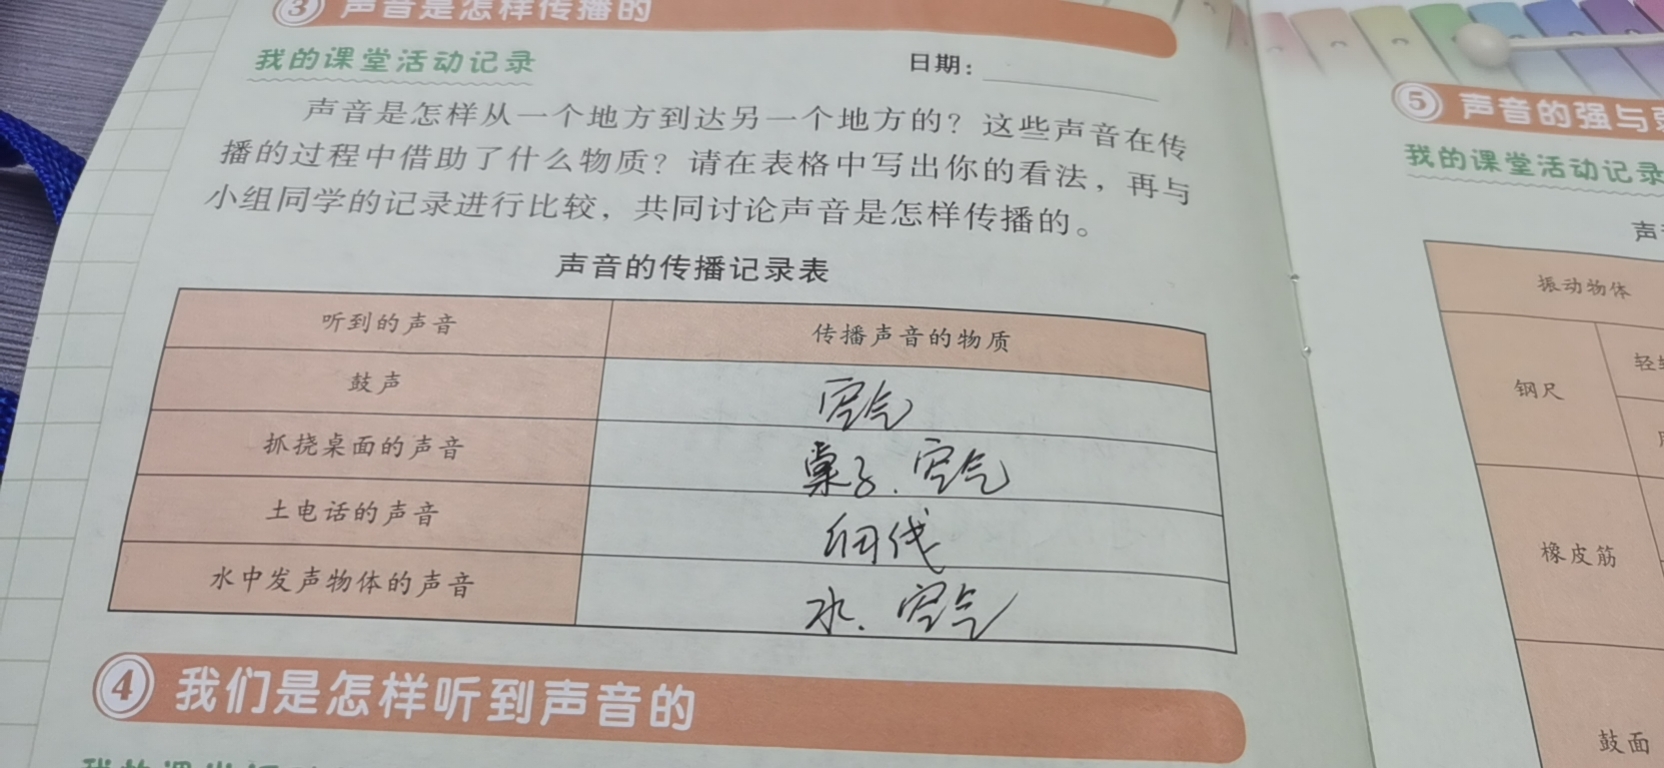 3 声音是怎样传播的
我的课堂活动记录
日期：
声音是怎样从一个地方到达另一个地方的？这些声音在传
播的过程中借助了什么物质？请在表格中写出你的看法，再与
小组同学的记录进行比较，共同讨论声音是怎样传播的。
声音的传播记录表
听到的声音 传播声音的物质
鼓声 空气
抓挠桌面的声音 桌子、空气
土电话的声音
水中发声物体的声音 水、空气
4 我们是怎样听到声音的
5 声音的强与
我的课堂活动记录
声
振动物体
钢尺
轻
橡皮筋
鼓面